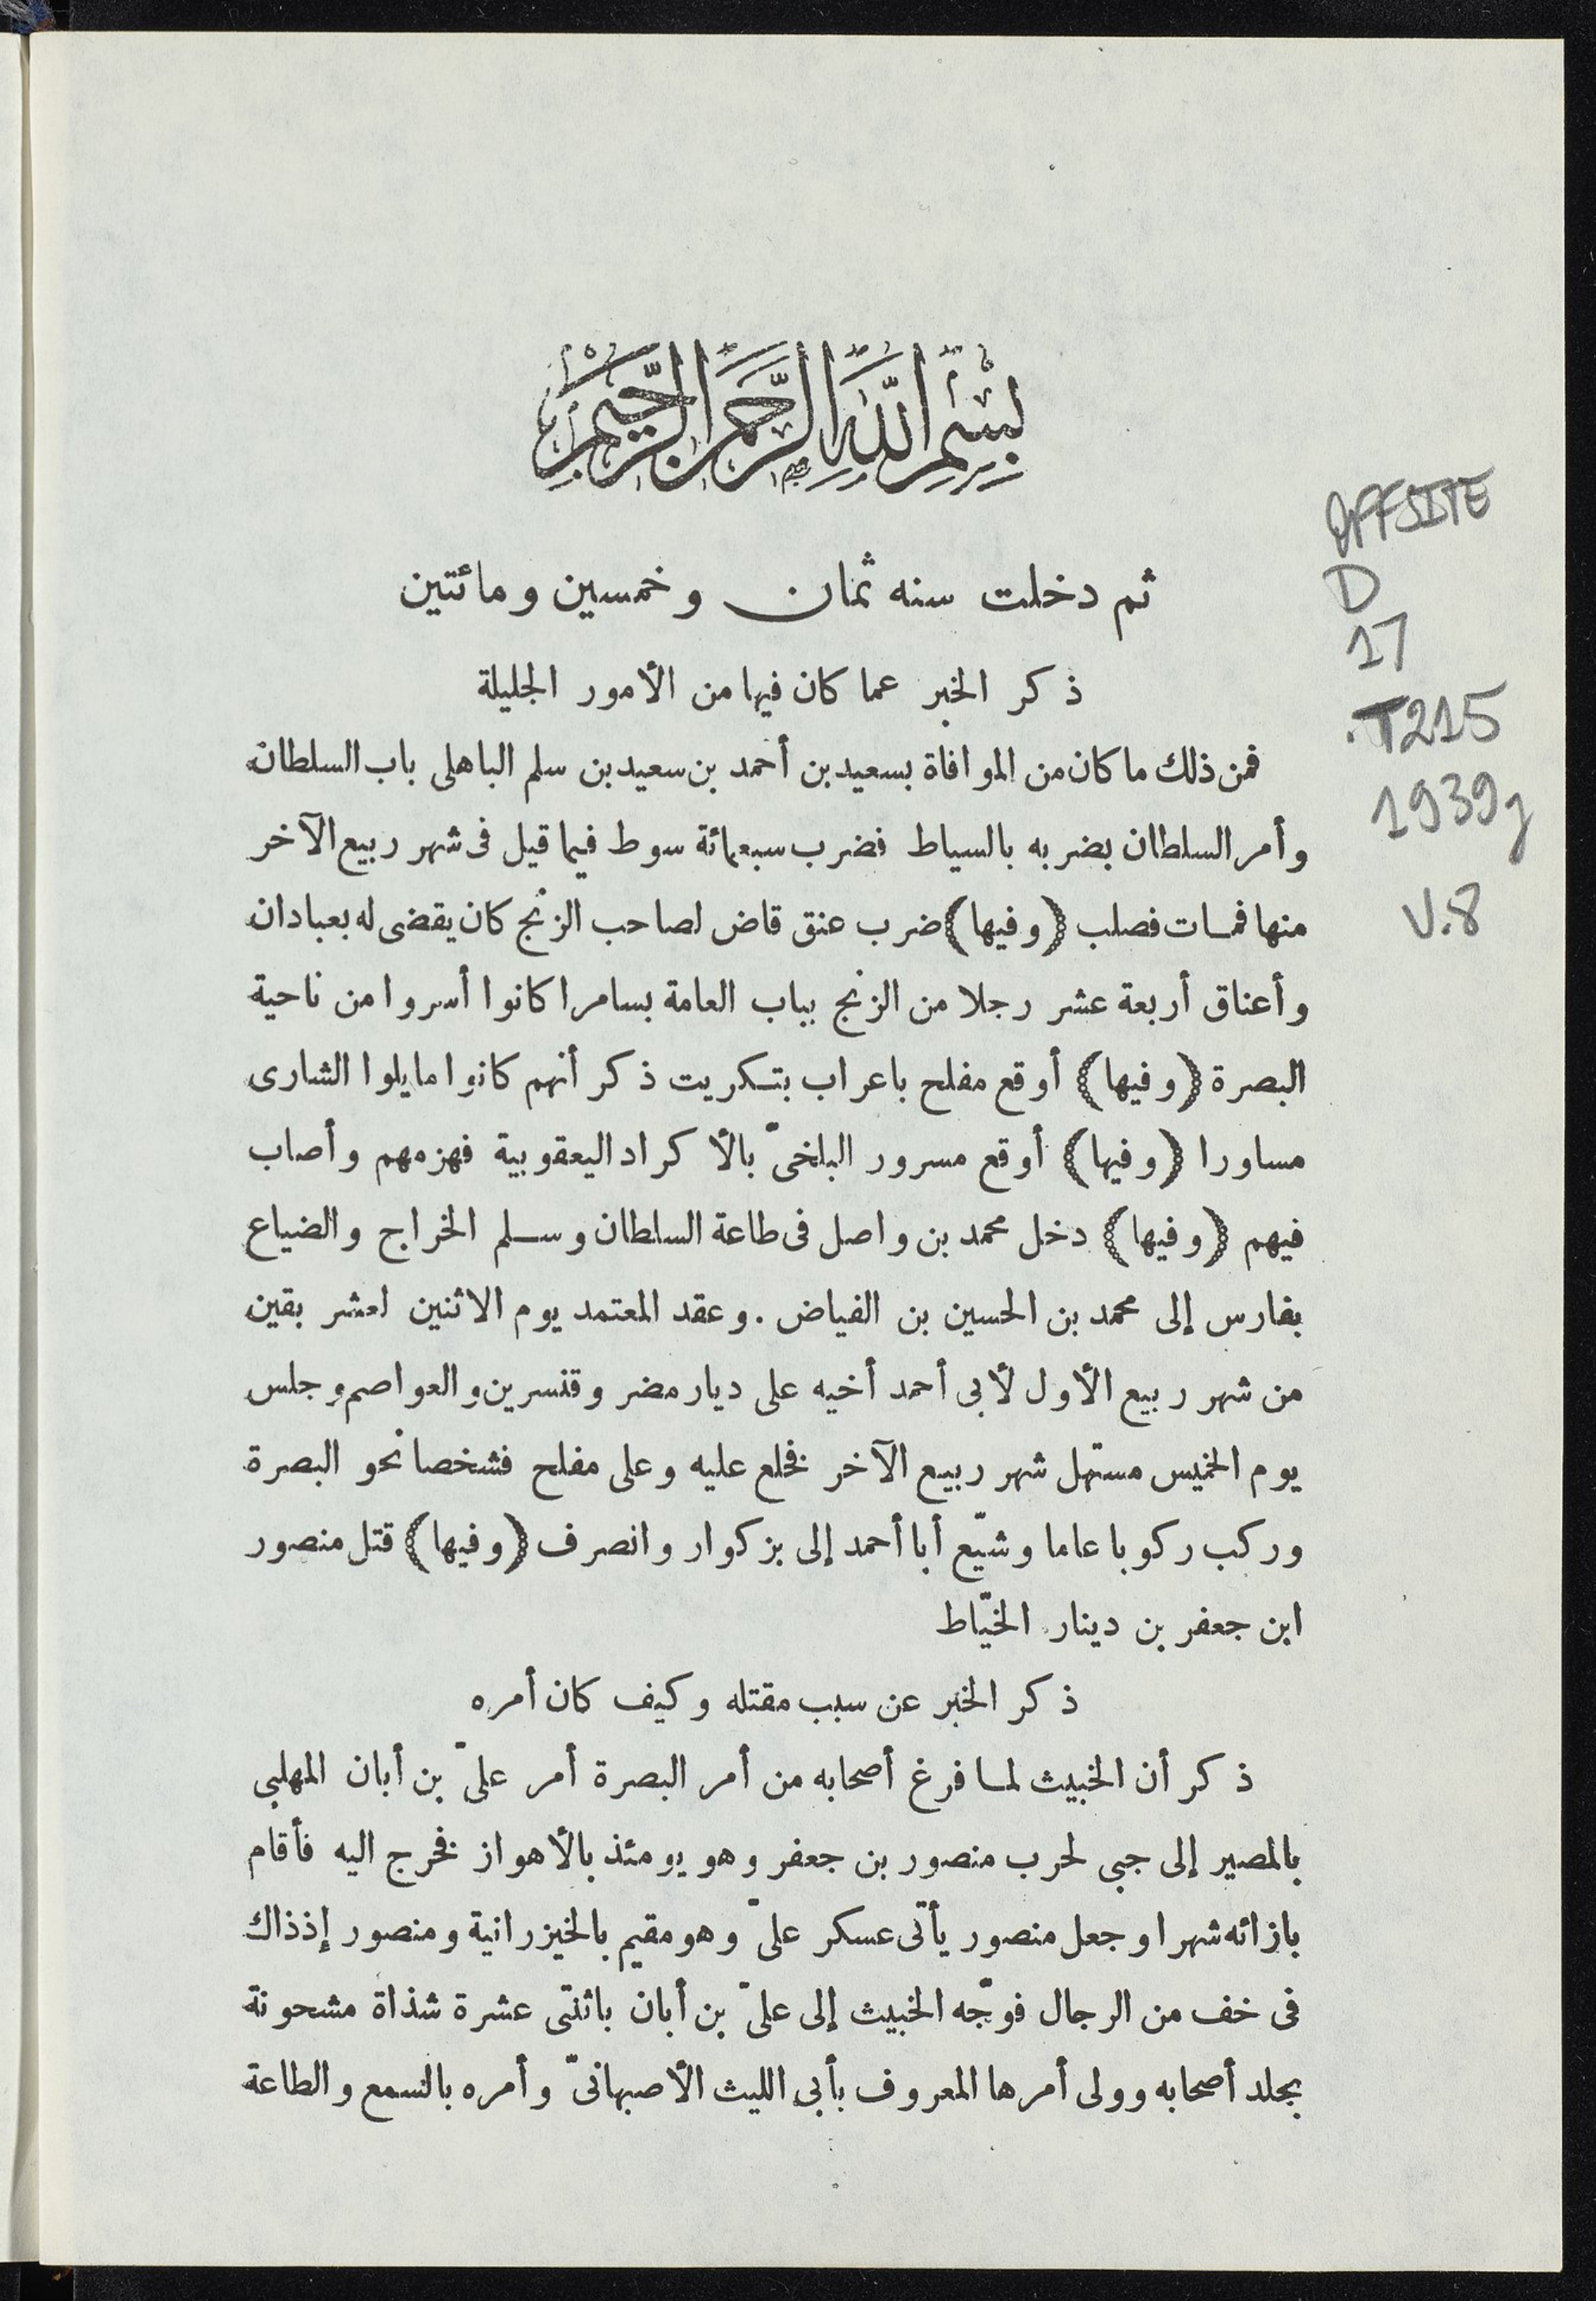 بِسْمِ اللَّهِ الرَّحْمَنِ الرَّحِيمِ
ثم دخلت سنه ثمان وخمسين ومائتين
ذكر الخبر عما كان فيها من الأمور الجليلة
فمن ذلك ما كان من الموافاة بسعيد بن أحمد بن سعيد بن سلم الباهلى باب السلطان
وأمر السلطان بضربه بالسياط فضرب سبعمائة سوط فيما قيل فى شهر ربيع الآخر
منها فمات فصلب (وفيها) ضرب عنق قاض لصاحب الزنج كان يقضى له بعبادان
وأعناق أربعة عشر رجلا من الزنج بباب العامة بسامرا كانوا أسروا من ناحية
البصرة (وفيها) أوقع مفلح باعراب بتكريت ذكر أنهم كانوا مايلوا الشارى
مساورا (وفيها) أوقع مسرور البلخىّ بالأكراد اليعقوبية فهزمهم وأصاب
فيهم (وفيها) دخل محمد بن واصل فى طاعة السلطان وسلم الخراج والضياع
بفارس إلى محمد بن الحسين بن الفياض . وعقد المعتمد يوم الاثنين لعشر بقين
من شهر ربيع الأول لأبى أحمد أخيه على ديار مضر وقنسرين والعواصم وجلس
يوم الخميس مستهل شهر ربيع الآخر فخلع عليه وعلى مفلح فشخصا نحو البصرة
وركب ركوبا عاما وشيّع أبا أحمد إلى بزكوار وانصرف (وفيها) قتل منصور
ابن جعفر بن دينار الخيّاط
ذكر الخبر عن سبب مقتله وكيف كان أمره
ذكر أن الخبيث لما فرغ أصحابه من أمر البصرة أمر علىّ بن أبان المهلبى
بالمصير إلى جبى لحرب منصور بن جعفر وهو يومئذ بالأهواز فخرج اليه فأقام
بازائه شهرا وجعل منصور يأتى عسكر علىّ وهو مقيم بالخيزرانية ومنصور إذ ذاك
فى خف من الرجال فوجّه الخبيث إلى علىّ بن أبان باثنتى عشرة شذاة مشحونة
بجلد أصحابه وولى أمرها المعروف بأبى الليث الأصبهانىّ وأمره بالسمع والطاعة
OFFSITE
D
17
.T215
1939g
V.8